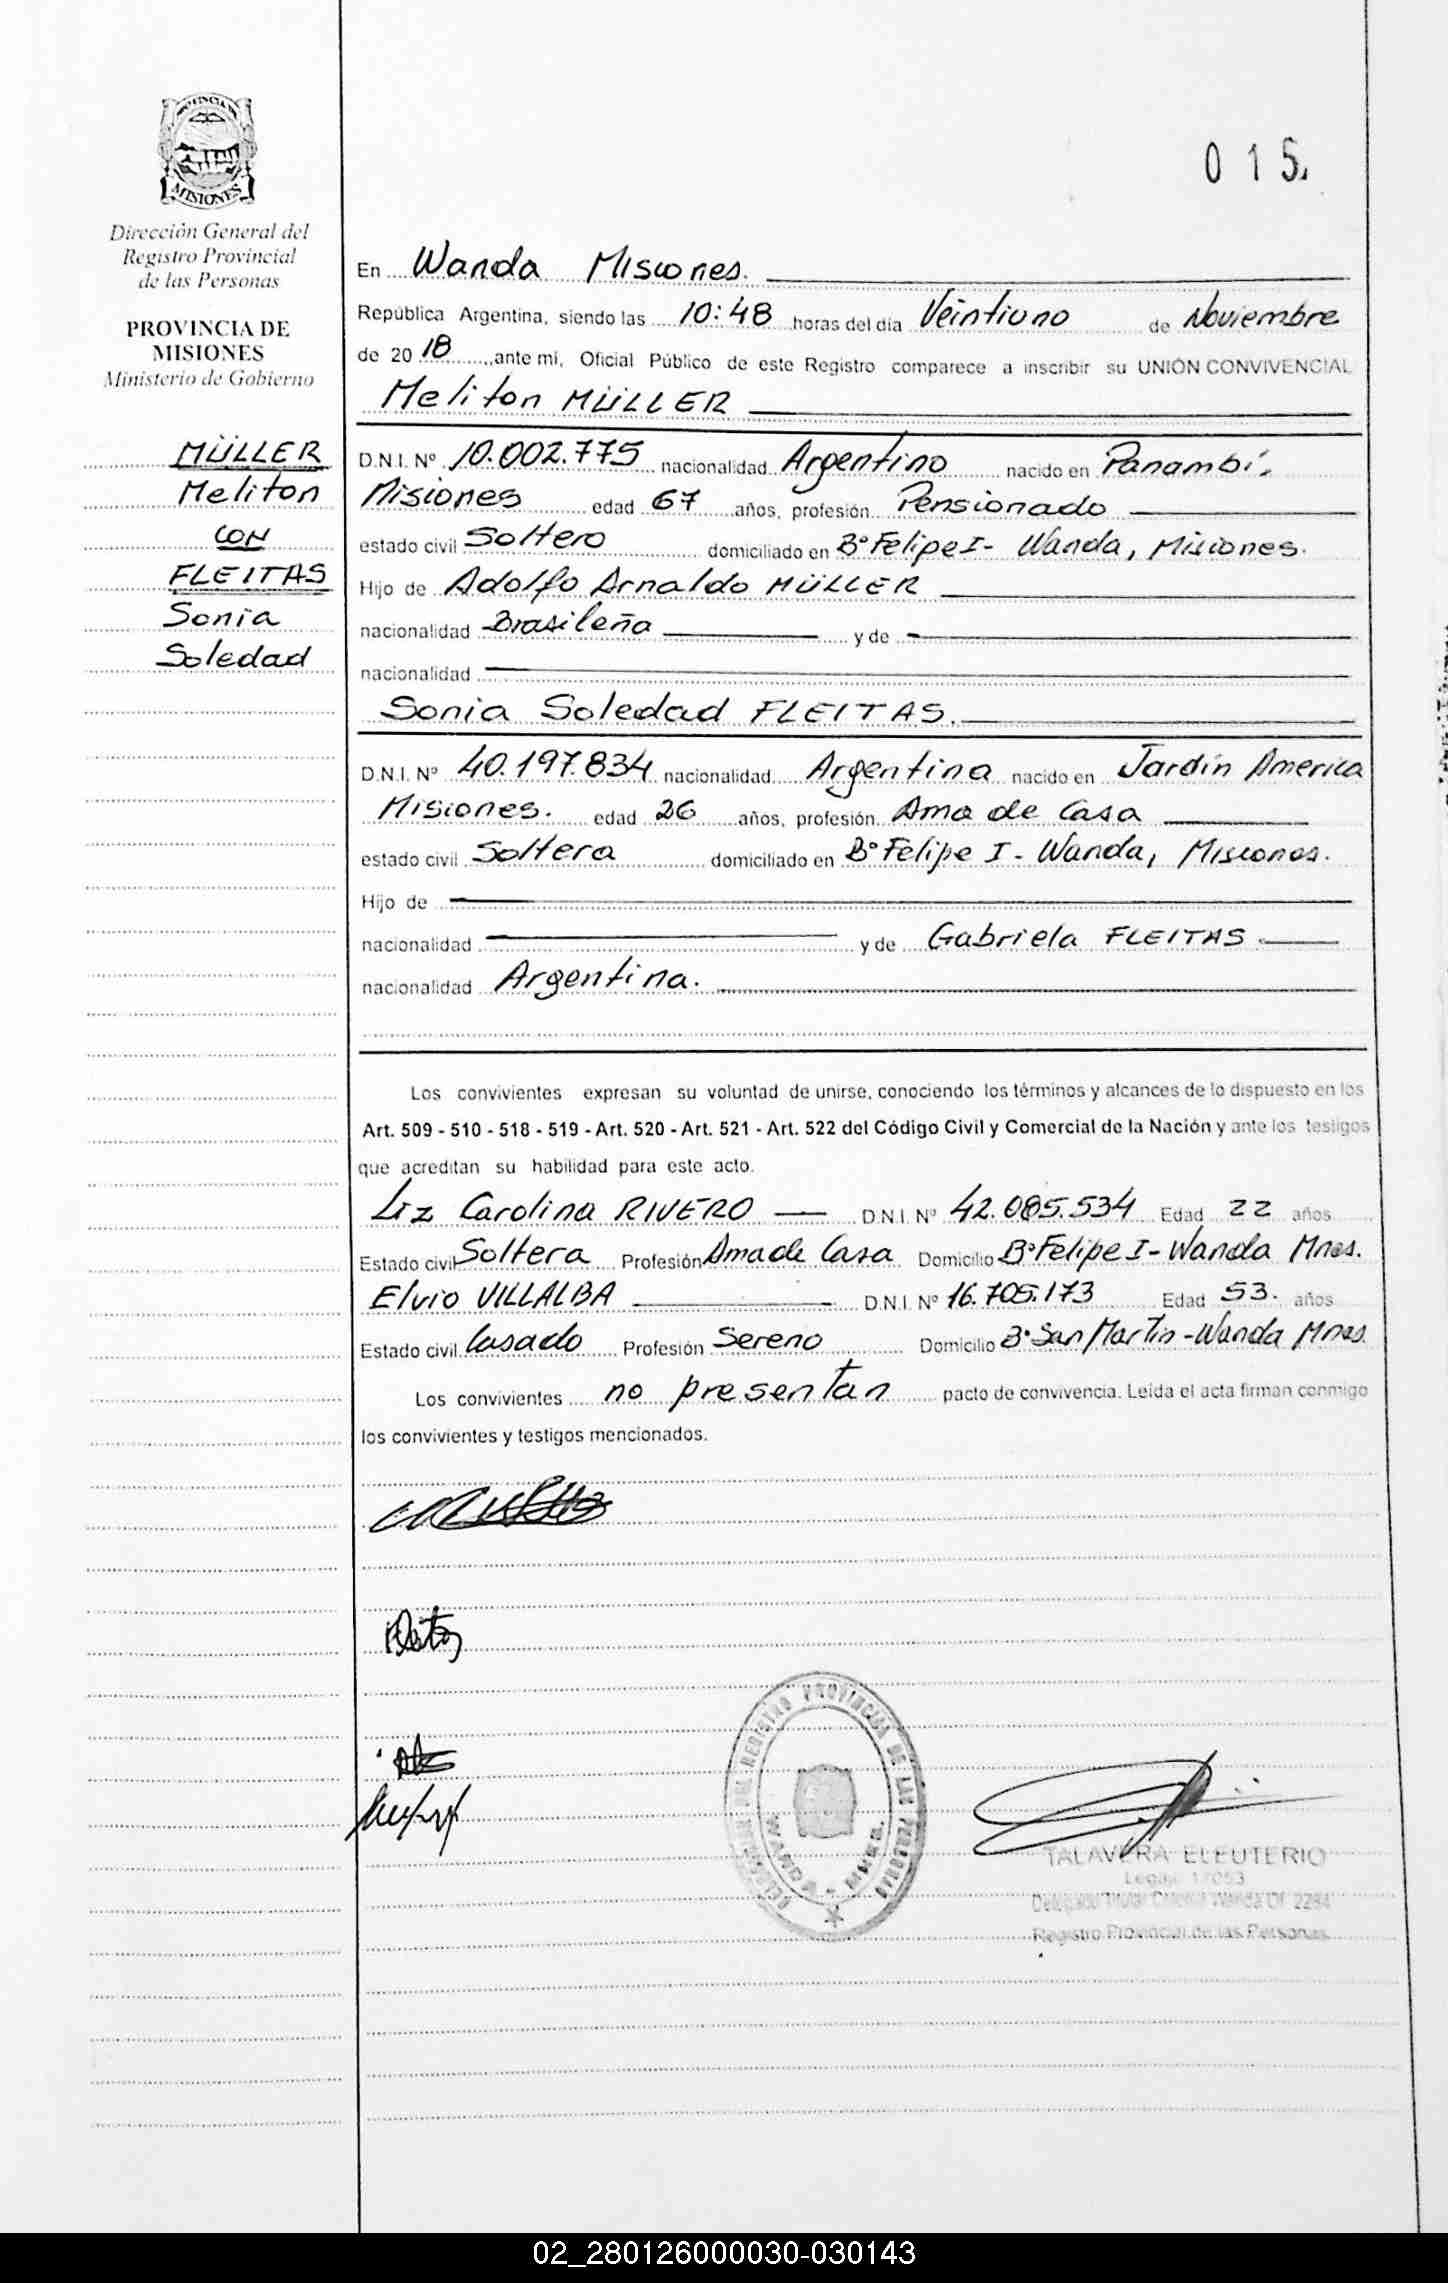 PROVINCIA DE
MISIONES
Dirección General del
Registro Provincial
de las Personas
PROVINCIA DE
MISIONES
Ministerio de Gobierno
MÜLLER
Meliton
CON
FLEITAS
Sonia
Soledad
015.
En Wanda Misiones.
República Argentina, siendo las 10:48 horas del día Veintiuno de Noviembre
de 2018 ,ante mi, Oficial Público de este Registro comparece a inscribir su UNIÓN CONVIVENCIAL
Meliton MÜLLER
D.N.I. Nº 10.002.775 nacionalidad Argentino nacido en Panambí,
Misiones edad 67 años, profesión Pensionado
estado civil Soltero domiciliado en Bº Felipe I - Wanda, Misiones.
Hijo de Adolfo Arnaldo MÜLLER
nacionalidad Brasileña y de
nacionalidad
Sonia Soledad FLEITAS.
D.N.I. Nº 40.197.834 nacionalidad Argentina nacido en Jardin America
Misiones. edad 26 años, profesión Ama de Casa
estado civil Soltera domiciliado en Bº Felipe I - Wanda, Misiones.
Hijo de
nacionalidad y de Gabriela FLEITAS
nacionalidad Argentina.
Los convivientes expresan su voluntad de unirse, conociendo los términos y alcances de lo dispuesto en los
Art. 509 - 510 - 518 - 519 - Art. 520 - Art. 521 - Art. 522 del Código Civil y Comercial de la Nación y ante los testigos
que acreditan su habilidad para este acto.
Liz Carolina RIVERO D.N.I. Nº 42.085.534 Edad 22 años
Estado civil Soltera Profesión Ama de Casa Domicilio Bº Felipe I - Wanda Mnes.
Elvio VILLALBA D.N.I. Nº 16.705.173 Edad 53. años
Estado civil Casado Profesión Sereno Domicilio Bº San Martin - Wanda Mnes
Los convivientes no presentan pacto de convivencia. Leída el acta firman conmigo
los convivientes y testigos mencionados.
REGISTRO PROVINCIAL DE LAS PERSONAS
WANDA - MNES.
TALAVERA ELEUTERIO
Legajo 17053
Delegado Titular Wanda Of. 2284
Registro Provincial de las Personas
02_280126000030-030143